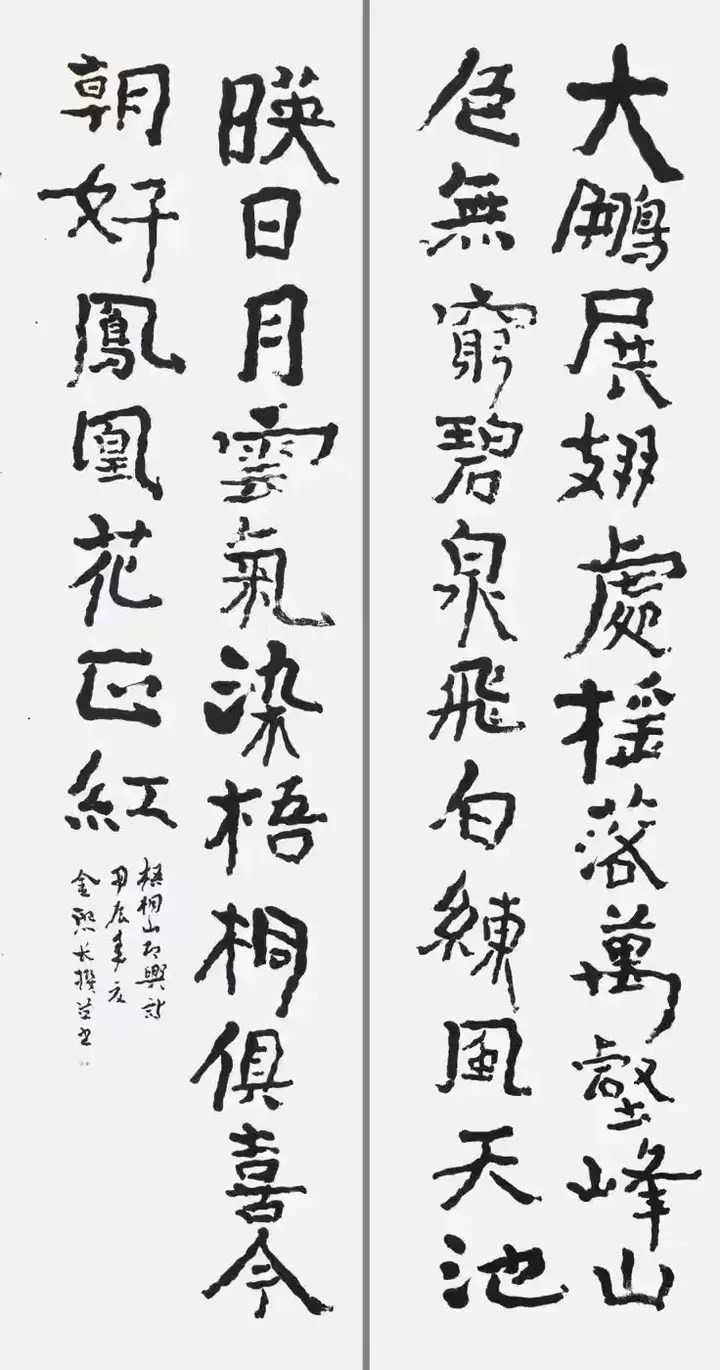 大鵬展翅處摇落萬壑峰山
色無窮碧泉飛白練風天池
暎日月雲氣染梧桐俱喜今
朝好鳳凰花正紅
梧桐山即興詩
甲辰年夏
金熙长撰並书